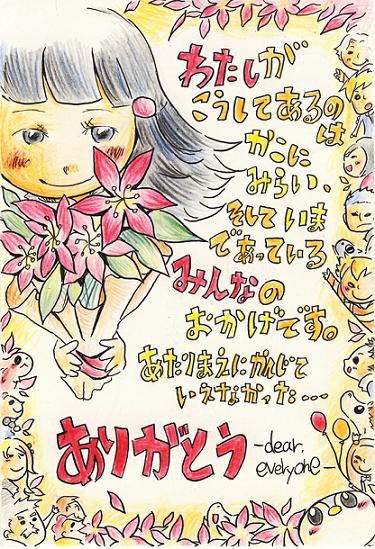 わたしが
こうしてあるの
は
かこに
みらい、
そして いま
であっている
みんなの
おかげです。
あたりまえにかんじて
いえなかった…
ありがとう
-dear.
everyone-